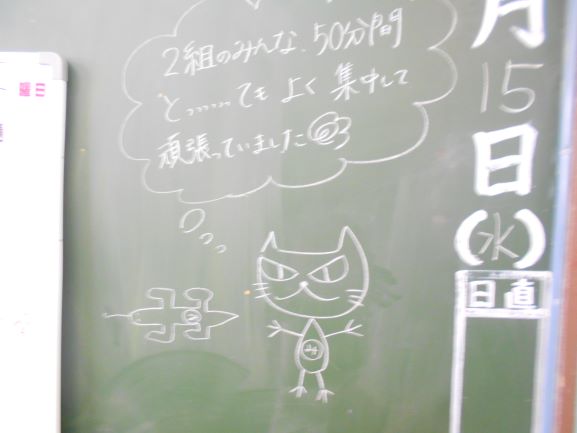 2組のみんな、50分間
とっ……てもよく集中して
頑張っていました
月
15
日
(水)
日直
曜日